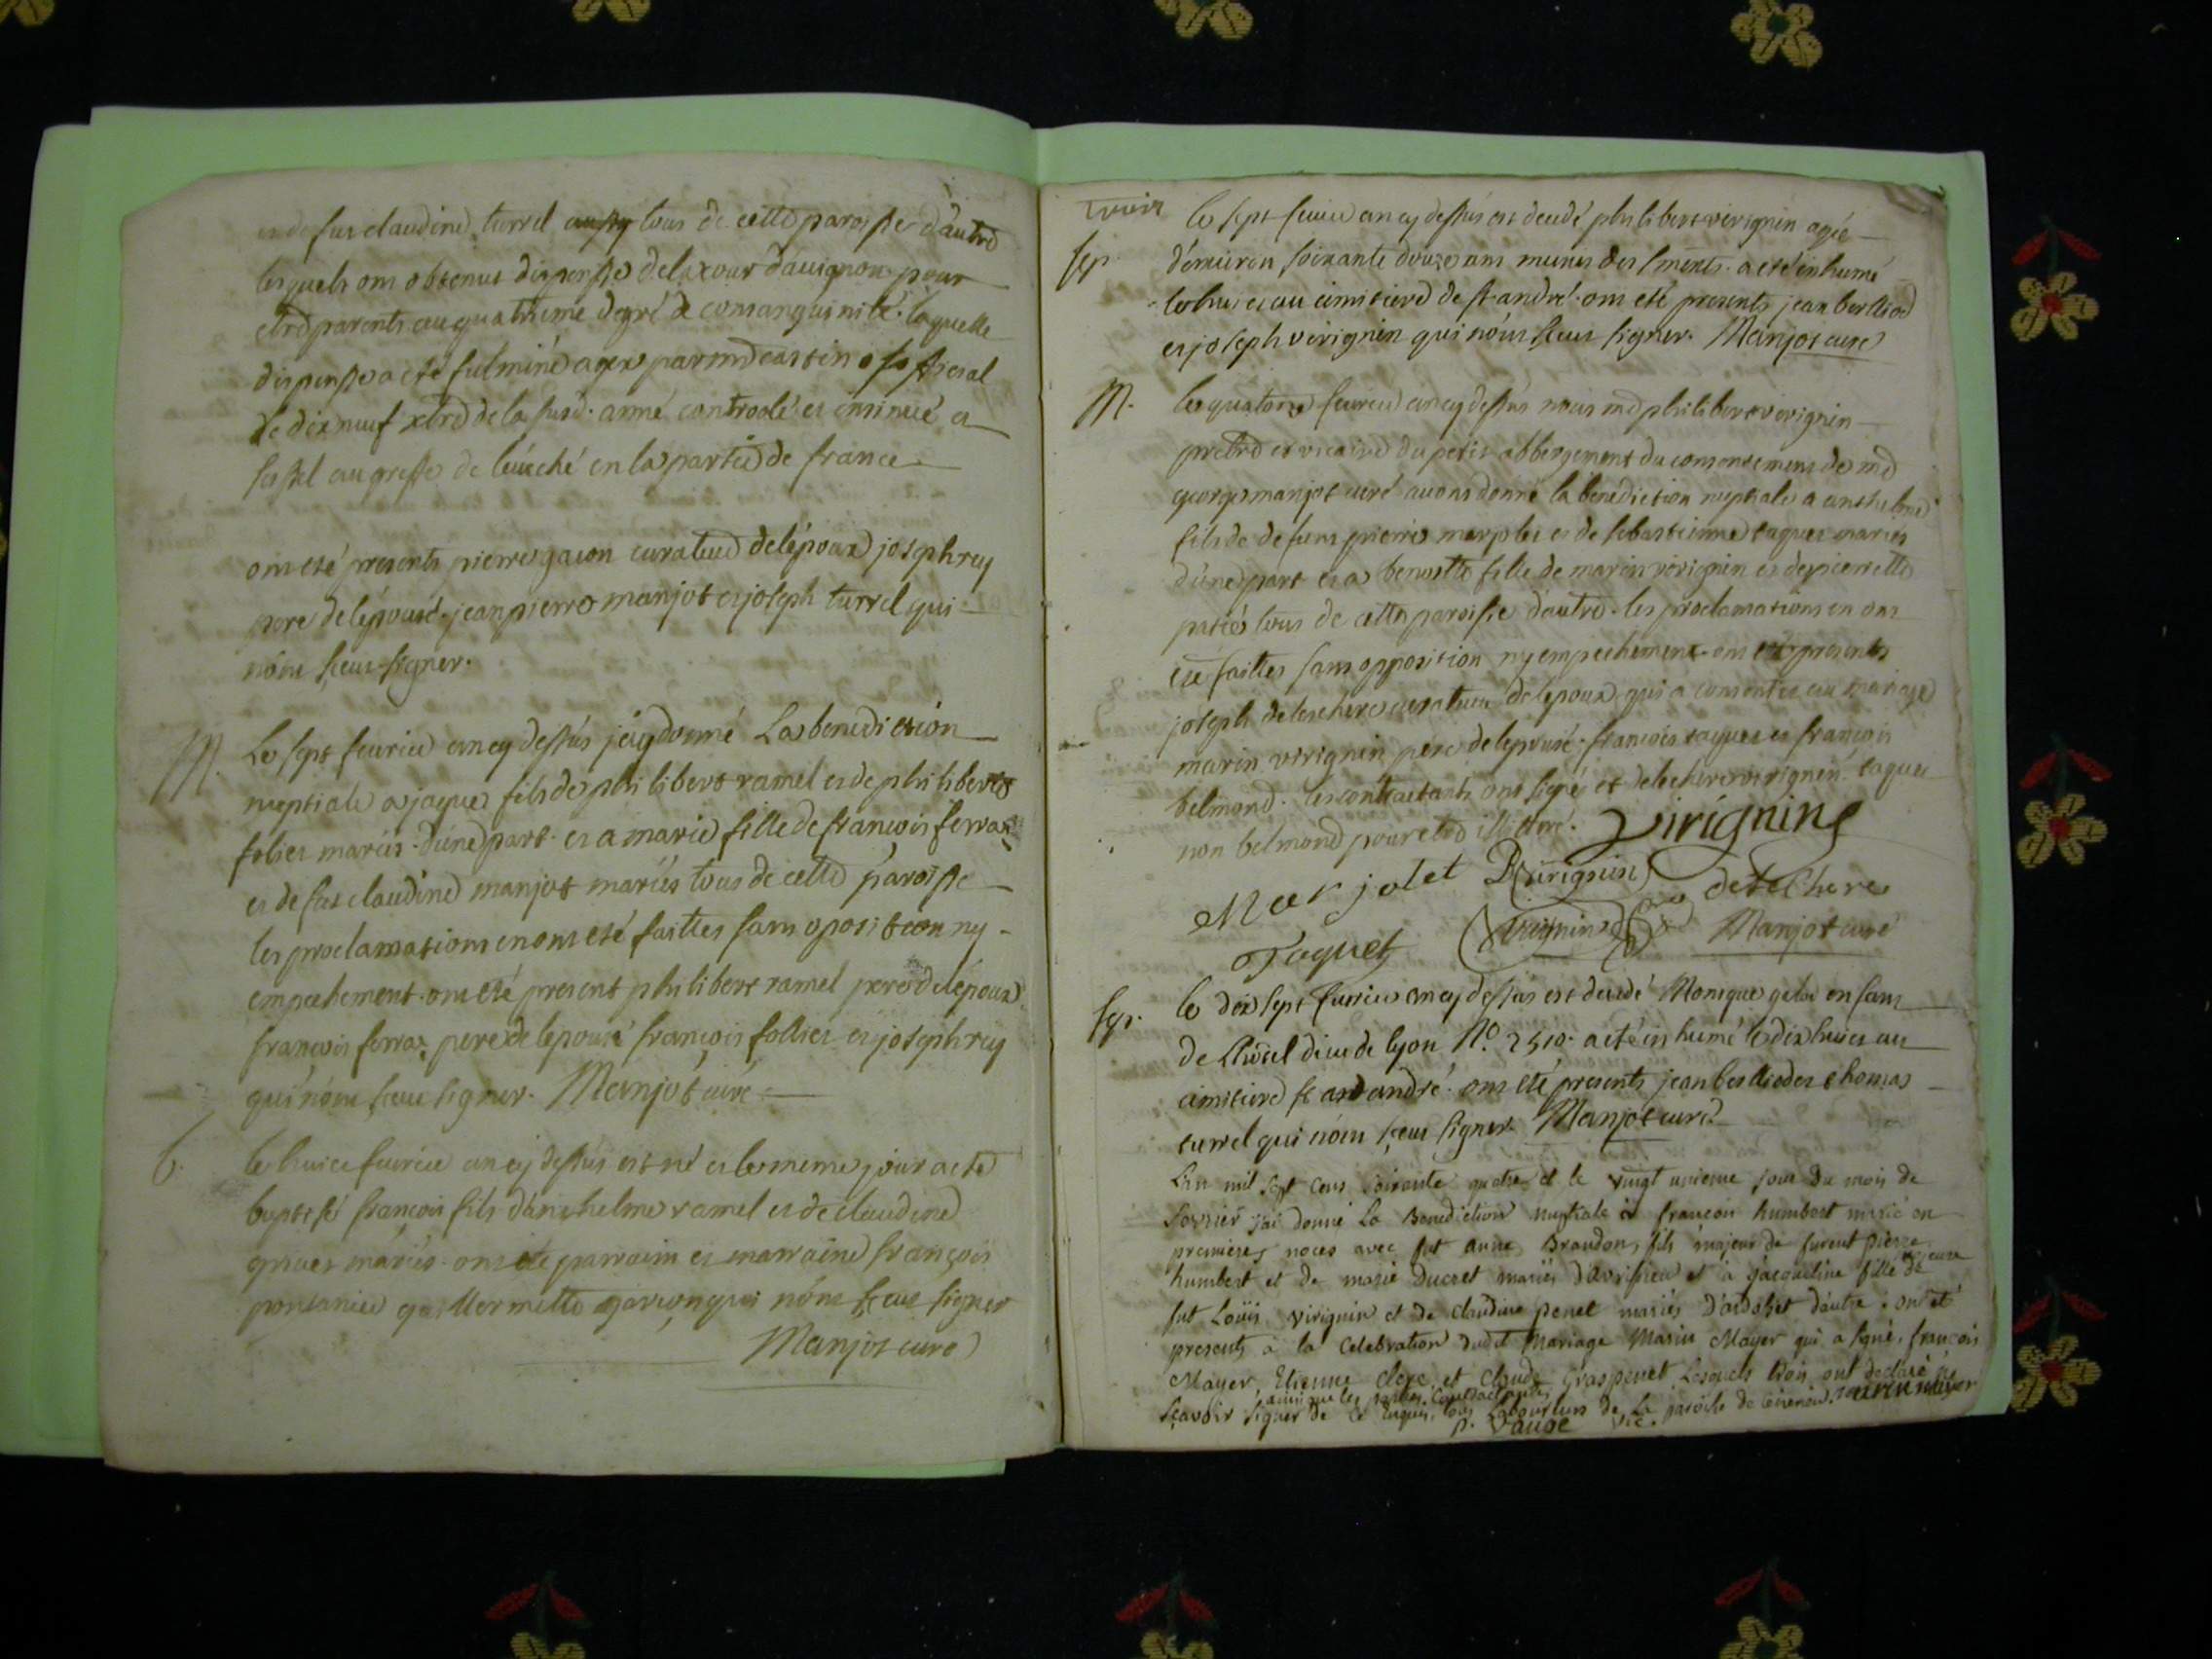 et de fut claudine turrel tous de cette paroisse d'autre
lesquels ont obtenus dispense de la cour d'auignon pour
etre parents au quatrieme degré de consanguinité. laquelle
dispense a eté fulminé a par md official
le dix neuf xbre de la susd. anné controolé et insinué a
seissel au greffe de leueché en la partie de france
ont eté presents pierre gacon curateur de lépoux joseph rey
pere de lépouse. jean pierre manjot et joseph turrel qui
n'ont sceus signer.
M. Le sept feurier an cy dessus j'ay donné La benediction
nuptiale a jaque fils de philibert ramel et de philiberte
folliet mariés d'une part. et a marie fille de françois ferraz
et de fut claudine manjot mariés tous de cette paroisse
les proclamations en ont eté faittes sans oposition ny
empechement. ont eté present philibert ramel pere de lépoux
françois ferraz pere de lepouse françois folliet et joseph rey
qui n'ont sceu signer. Manjot curé
b. le huict feurier an cy dessus est né et le meme jour a eté
baptisé françois fils d'anthelme ramel et de claudine
mariés. ont eté parrain et marraine françois
garçon qui n'ont sceus signer
Manjot curé
le sept feurier an cy dessus est decedé philibert virignin agé
sep. d'enuiron soixante douze ans munis des sments. a eté inhumé
le huict au cimitiere de st andré. ont eté presents jean berlliod
et joseph virignin qui n'ont sceus signer. Manjot curé
M. le quatorze feurier an cy dessus nous md philibert virignin
pretre et vicaire du petit abbergement du consentement de md
george manjot curé auons donné la benediction nuptiale a anthelme
fils de defunt pierre marjolet et de sebastienne taquet mariés
d'une part et a benoitte fille de marin virignin et de pierrette
tous de cette paroisse d'autre. les proclamations en ont
eté faittes sans opposition ny empechement. ont eté presents
joseph delechere curateur de lepoux qui a consentit au mariage
marin virignin pere de lepouse. francois taquet et francois
belmond. les contractants ont signé et delechere virignin taquet
non belmond pour etre illitteré. Virignin
Marjolet B Virignin detechere
Taquet Virignin Manjot curé
sep. le dix sept feurier an cy dessus est decedé Monique enfant
de Lhotel dieu de lyon No. 2510. a eté inhumé le dix huict au
cimitiere st andré. ont eté presents jean berlliod et thomas
turrel qui n'ont sceus signer. Manjot curé
L'an mil sept cens soixante quatre et le vingt unieme jour du mois de
fevrier j'ai donné La Benediction nuptiale à francois humbert marié en
premieres noces avec fut anne Brandon, fils majeur de furent pierre
humbert et de marie Ducret mariés d'avrissieu et à jacqueline fille majeure de
fut Loüis virignin et de claudine penet mariés d'ardoset d'autre. ont eté
presents à la Celebration dudit Mariage Marin Mayer qui a signé, francois
Mayer, Etienne Clerc et Claude graspenet Lesquels trois ont declaré
ainsi que les parties contractantes
scavoir signer de ce enquis, tous Laboureurs de La paroisse de marin mayer
p. Vauge vic.